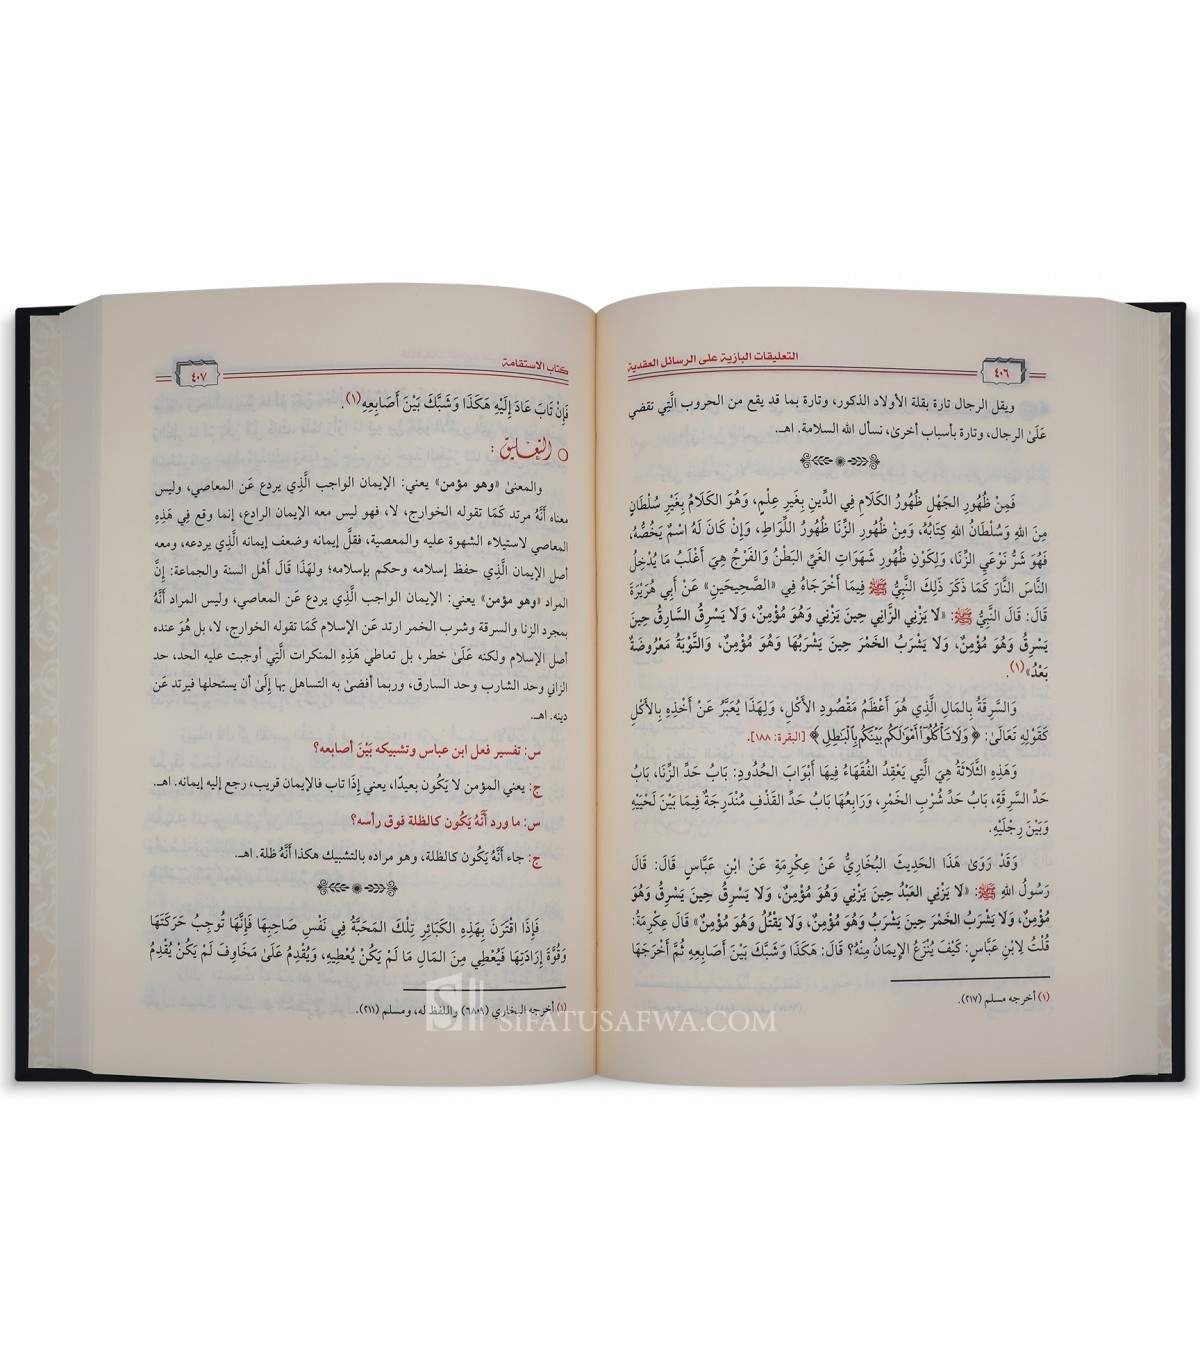 التعليقات البازية على الرسائل العقدية
٤٠٦
ويقل الرجال تارة بقلة الأولاد الذكور، وتارة بما قد يقع من الحروب الَّتِي تقضي
عَلَىٰ الرجال، وتارة بأسباب أخرىٰ، نسأل الله السلامة. اهـ.
فَمِنْ ظُهُورِ الجَهْلِ ظُهُورُ الكَلَامِ فِي الدِّينِ بِغَيرِ عِلْمٍ، وَهُوَ الكَلَامُ بِغَيْرِ سُلْطَانٍ
مِنَ اللهِ وَسُلْطَانُ اللهِ كِتَابُهُ، وَمِنْ ظُهُورِ الزِّنَا ظُهُورُ اللِّوَاطِ، وَإِنْ كَانَ لَهُ اسْمٌ يَخُصُّهُ،
فَهُوَ شَرُّ نَوْعَيِ الزِّنَا، وَلِكَوْنِ ظُهُورِ شَهَوَاتِ الغَيِّ البَطْنُ وَالفَرْجُ هِيَ أَغْلَبُ مَا يُدْخِلُ
النَّاسَ النَّارَ كَمَا ذَكَرَ ذَلِكَ النَّبِيُّ ﷺ فِيمَا أَخْرَجَاهُ فِي «الصَّحِيحَينِ» عَنْ أَبِي هُرَيْرَةَ
قَالَ: قَالَ النَّبِيُّ ﷺ: «لَا يَزْنِي الزَّانِي حِينَ يَزْنِي وَهُوَ مُؤْمِنٌ، وَلَا يَسْرِقُ السَّارِقُ حِينَ
يَسْرِقُ وَهُوَ مُؤْمِنٌ، وَلَا يَشْرَبُ الخَمْرَ حِينَ يَشْرَبُهَا وَهُوَ مُؤْمِنٌ، وَالتَّوْبَةُ مَعْرُوضَةٌ
بَعْدُ»(١).
وَالسَّرِقَةُ بِالمَالِ الَّذِي هُوَ أَعْظَمُ مَقْصُودِ الأَكْلِ، وَلِهَذَا يُعَبَّرُ عَنْ أَخْذِهِ بِالأَكْلِ
كَقَوْلِهِ تَعَالَىٰ: ﴿وَلَا تَأْكُلُوٓا۟ أَمْوَٰلَكُم بَيْنَكُم بِٱلْبَٰطِلِ﴾ [البقرة: ١٨٨].
وَهَذِهِ الثَّلَاثَةُ هِيَ الَّتِي يَعْقِدُ الفُقَهَاءُ فِيهَا أَبْوَابَ الحُدُودِ: بَابُ حَدِّ الزِّنَا، بَابُ
حَدِّ السَّرِقَةِ، بَابُ حَدِّ شُرْبِ الخَمْرِ، وَرَابِعُهَا بَابُ حَدِّ القَذْفِ مُنْدَرِجَةٌ فِيمَا بَيْنَ لَحْيَيْهِ
وَبَيْنَ رِجْلَيْهِ.
وَقَدْ رَوَىٰ هَذَا الحَدِيثَ البُخَارِيُّ عَنْ عِكْرِمَةَ عَنْ ابْنِ عَبَّاسٍ قَالَ: قَالَ
رَسُولُ اللهِ ﷺ: «لَا يَزْنِي العَبْدُ حِينَ يَزْنِي وَهُوَ مُؤْمِنٌ، وَلَا يَسْرِقُ حِينَ يَسْرِقُ وَهُوَ
مُؤْمِنٌ، وَلَا يَشْرَبُ الخَمْرَ حِينَ يَشْرَبُ وَهُوَ مُؤْمِنٌ، وَلَا يَقْتُلُ وَهُوَ مُؤْمِنٌ» قَالَ عِكْرِمَةُ:
قُلْتُ لِابْنِ عَبَّاسٍ: كَيْفَ يُنْزَعُ الإِيمَانُ مِنْهُ؟ قَالَ: هَكَذَا وَشَبَّكَ بَيْنَ أَصَابِعِهِ ثُمَّ أَخْرَجَهَا
(١) أخرجه مسلم (٢١٧).
كتاب الاستقامة
٤٠٧
فَإِنْ تَابَ عَادَ إِلَيْهِ هَكَذَا وَشَبَّكَ بَيْنَ أَصَابِعِهِ(١).
التعليق:
والمعنىٰ «وهو مؤمن» يعني: الإيمان الواجب الَّذِي يردع عَن المعاصي، وليس
معناه أَنَّهُ مرتد كَمَا تقوله الخوارج، لا، فهو ليس معه الإيمان الرادع، إنما وقع فِي هَذِهِ
المعاصي لاستيلاء الشهوة عليه والمعصية، فقلَّ إيمانه وضعف إيمانه الَّذِي يردعه، ومعه
أصل الإيمان الَّذِي حفظ إسلامه وحكم بإسلامه؛ ولهَذَا قَالَ أهل السنة والجماعة: إنَّ
المراد «وهو مؤمن» يعني: الإيمان الواجب الَّذِي يردع عَن المعاصي، وليس المراد أَنَّهُ
بمجرد الزنا والسرقة وشرب الخمر ارتد عَن الإسلام كَمَا تقوله الخوارج، لا، بل هُوَ عنده
أصل الإسلام ولكنه عَلَىٰ خطر، بل تعاطي هَذِهِ المنكرات الَّتِي أوجبت عليه الحد، حد
الزاني وحد الشارب وحد السارق، وربما أفضىٰ به التساهل بها إِلَىٰ أن يستحلها فيرتد عَن
دينه. اهـ.
س: تفسير فعل ابن عباس وتشبيكه بَيْنَ أصابعه؟
ج: يعني المؤمن لا يَكُون بعيدًا، يعني إِذَا تاب فالإيمان قريب، رجع إليه إيمانه. اهـ.
س: ما ورد أَنَّهُ يَكُون كالظلة فوق رأسه؟
ج: جاء أَنَّهُ يَكُون كالظلة، وهو مراده بالتشبيك هكذا أَنَّهُ ظلة. اهـ.
فَإِذَا اقْتَرَنَ بِهَذِهِ الكَبَائِرِ تِلْكَ المَحَبَّةُ فِي نَفْسِ صَاحِبِهَا فَإِنَّهَا تُوجِبُ حَرَكَتَهَا
وَقُوَّةَ إِرَادَتِهَا فَيُعْطِي مِنَ المَالِ مَا لَمْ يَكُنْ يُعْطِيهِ، وَيُقْدِمُ عَلَىٰ مَخَاوِفَ لَمْ يَكُنْ يُقْدِمُ
(١) أخرجه البخاري (٦٨٠٩) واللفظ له، ومسلم (٢١١).
SIFATUSAFWA.COM